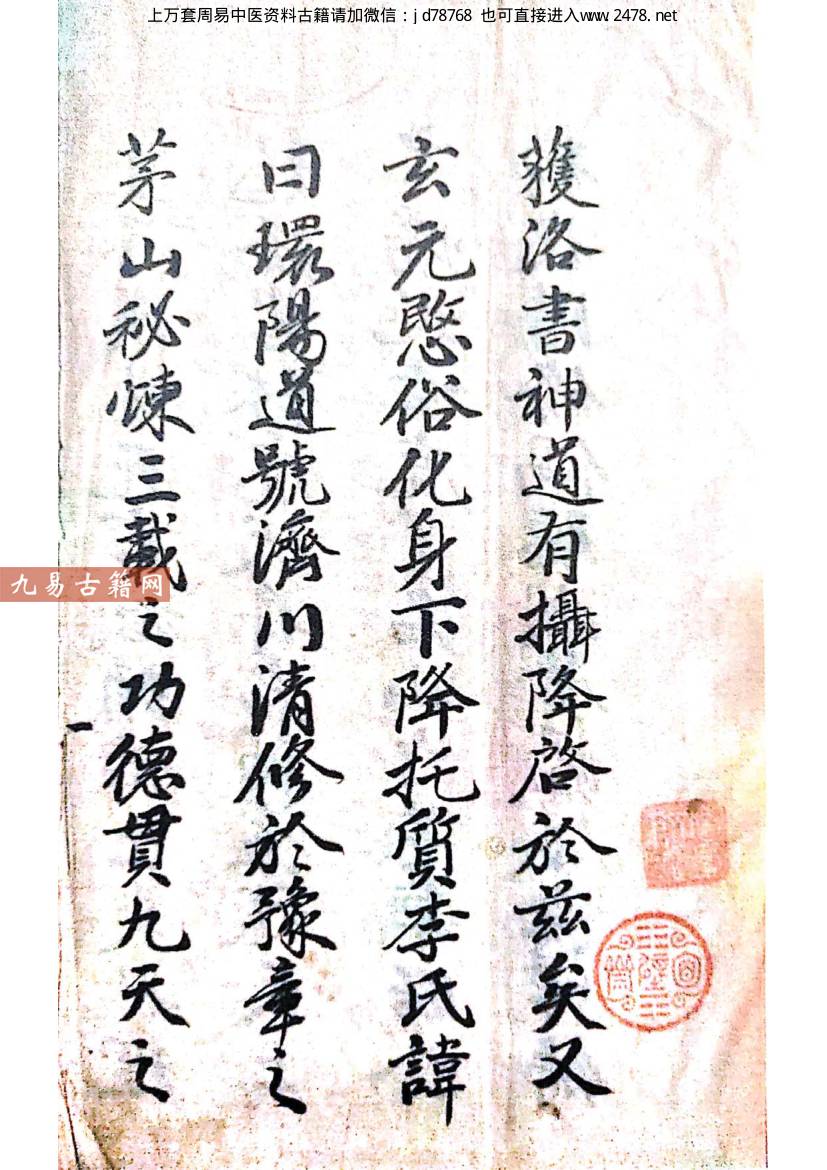 上万套周易中医资料古籍请加微信：jd78768 也可直接进入www.2478.net
蒦洛書神道有攝降啓於茲矣又
玄元愍俗化身下降托質李氏諱
曰環陽道號濟川清修於豫章之
茅山祕煉三載之功德貫九天之
九易古籍网